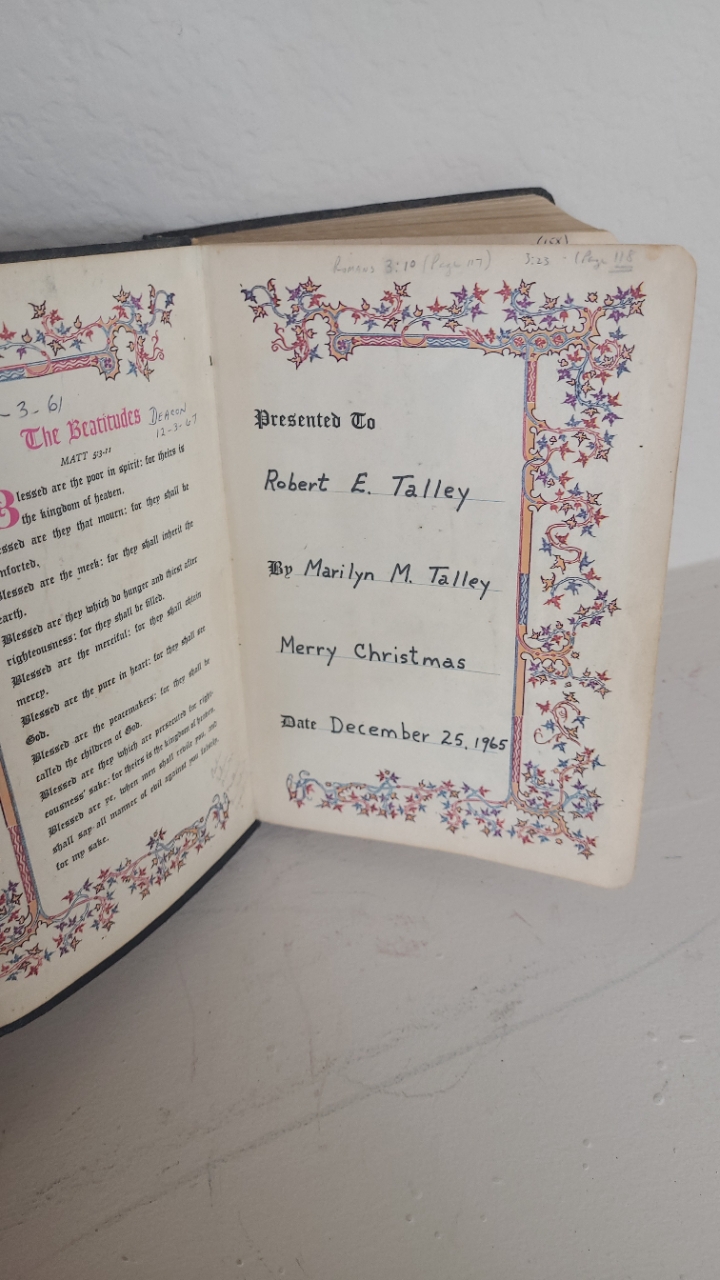 -3-61
The Beatitudes DEACON
12-3-67
MATT 5:3-11
Blessed are the poor in spirit: for theirs is
the kingdom of heaven.
essed are they that mourn: for they shall be
mforted.
Blessed are the meek: for they shall inherit the
earth.
Blessed are they which do hunger and thirst after
righteousness: for they shall be filled.
Blessed are the merciful: for they shall obtain
mercy.
Blessed are the pure in heart: for they shall see
God.
Blessed are the peacemakers: for they shall be
called the children of God.
Blessed are they which are persecuted for right-
eousness' sake: for theirs is the kingdom of heaven.
Blessed are ye, when men shall revile you, and
shall say all manner of evil against you falsely,
for my sake.
Romans 3:10 (Page 117) 3:23 - (Page 118
Presented To
Robert E. Talley
By Marilyn M. Talley
Merry Christmas
Date December 25, 1965